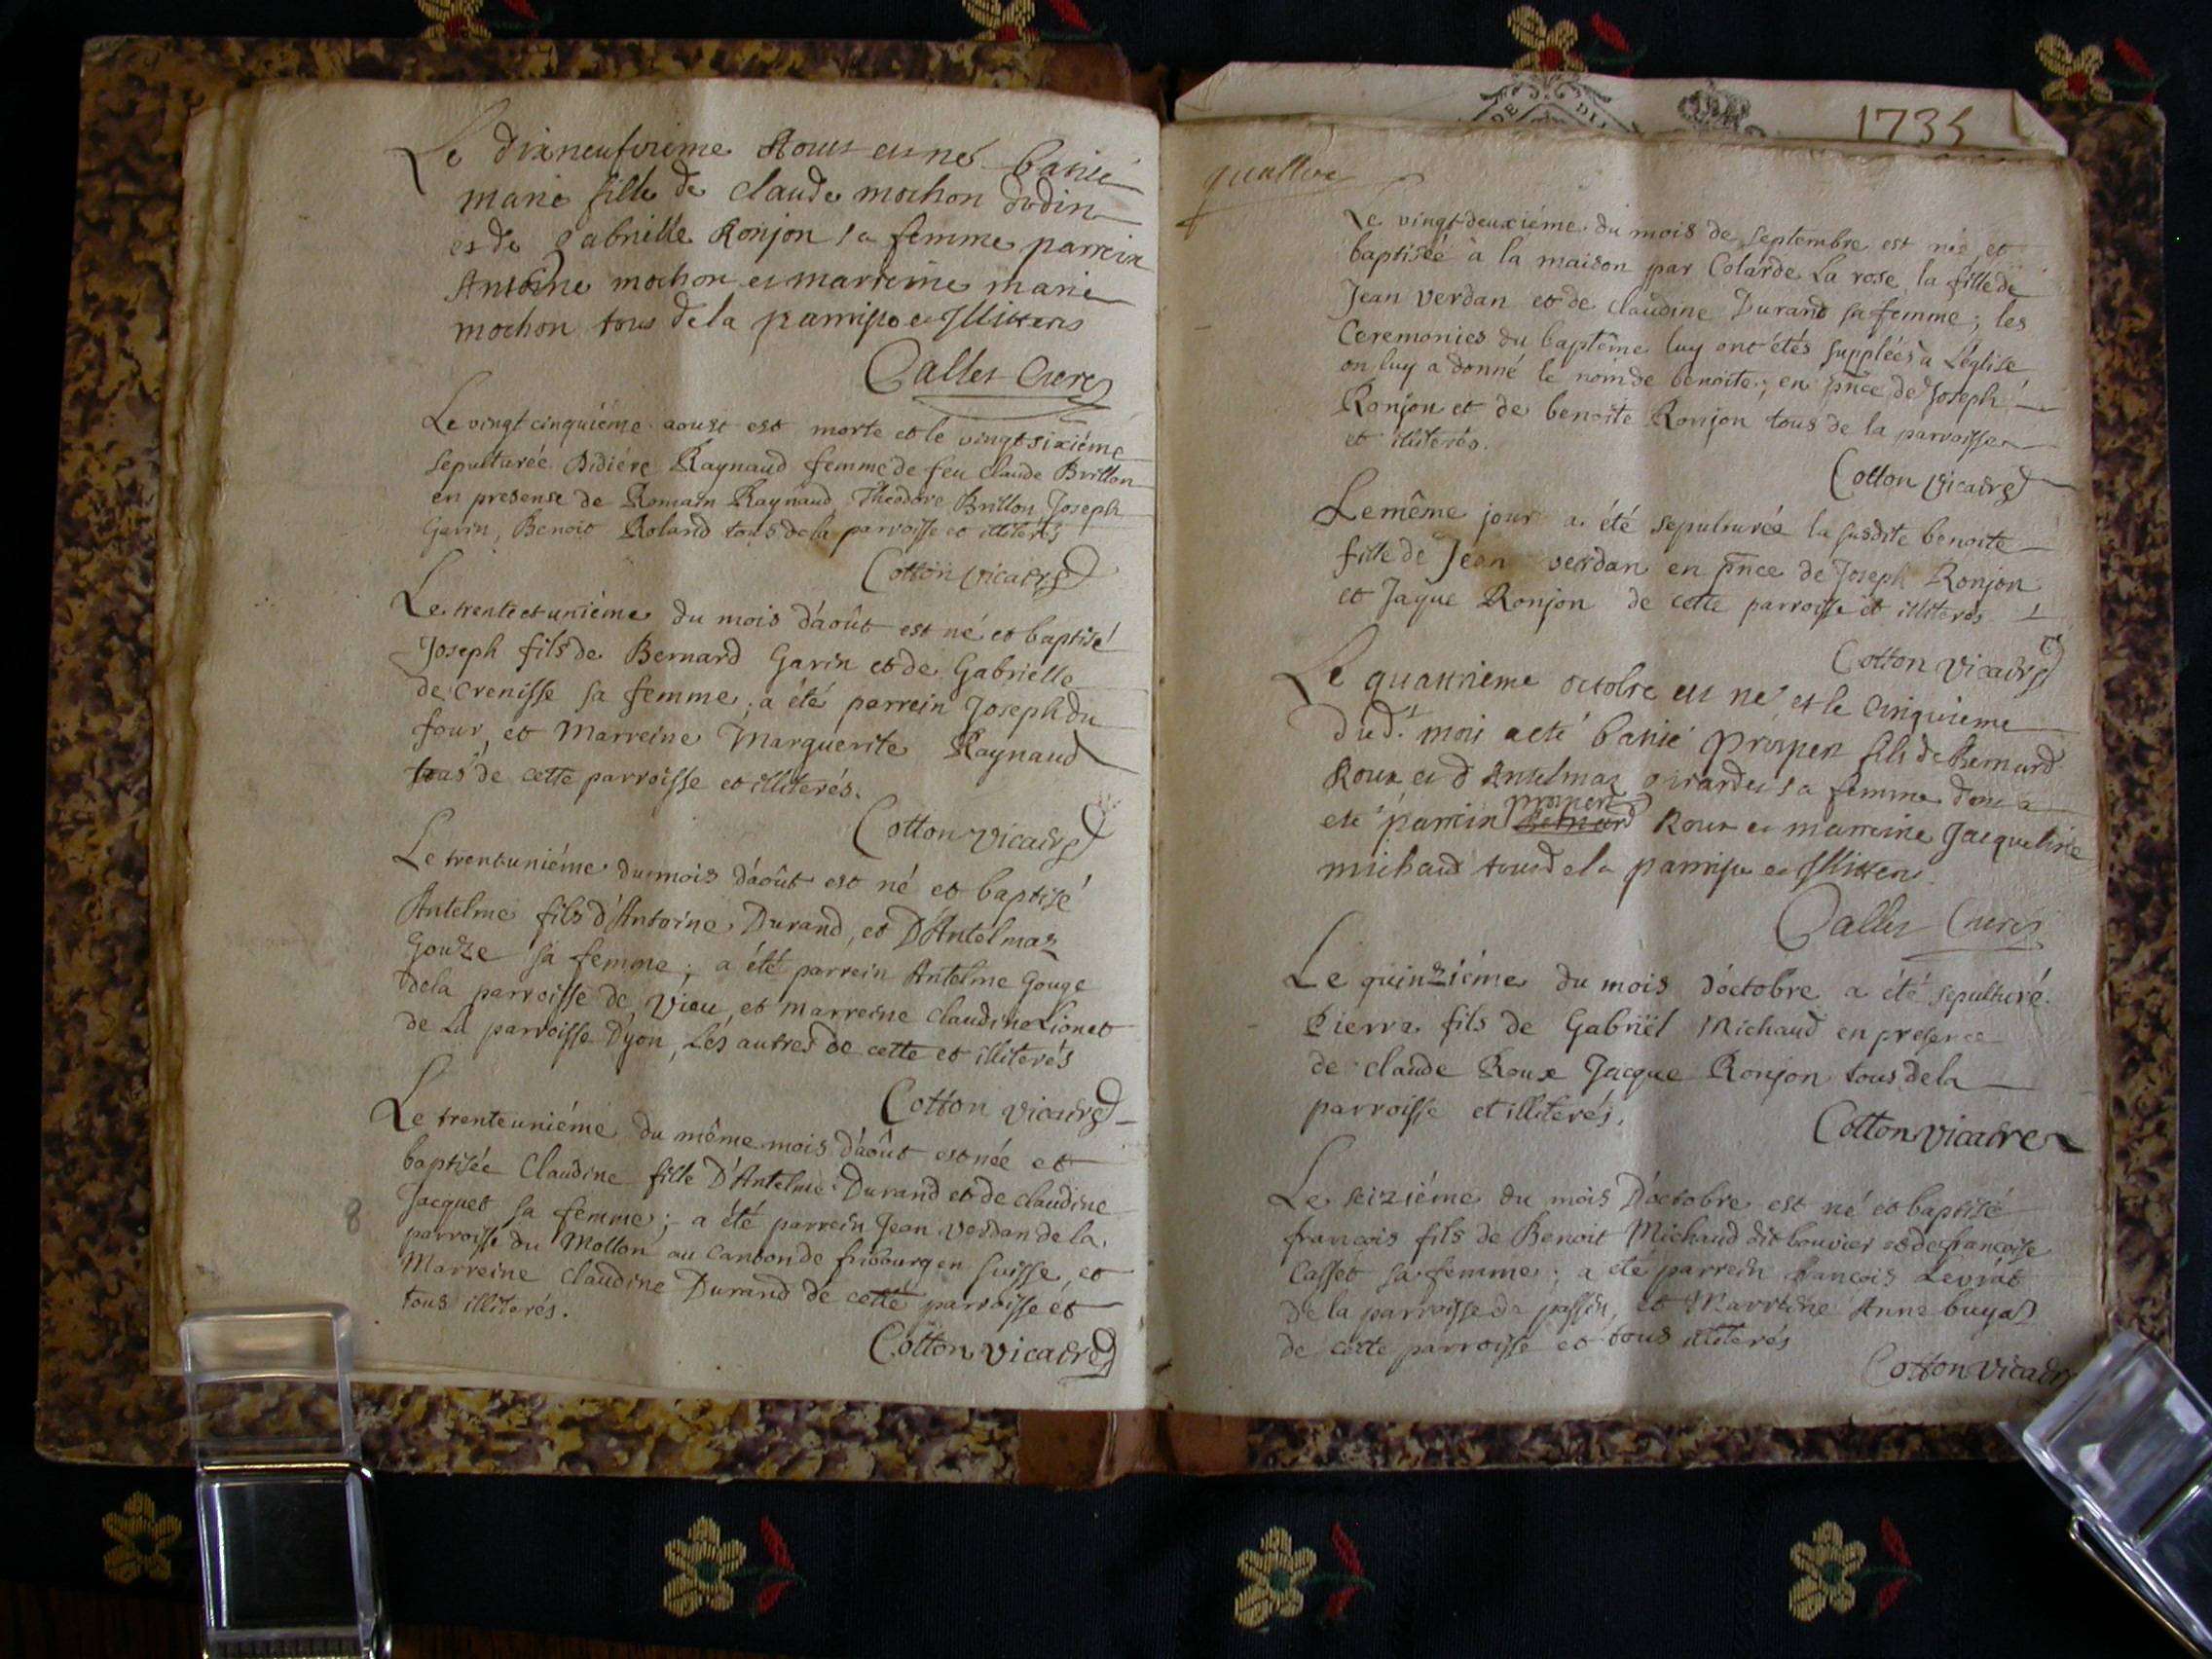 Le dixneufvieme Aoust est né batisé
marie fille de claude mochon dudin
et de gabrielle Ronjon sa femme parrein
Antoine mochon et marreine marie
mochon tous de la parroisse et Illitteres
Callet Curé
Le vingt cinquiéme aoust est morte et le vingt sixiéme
sepulturée Didiére Raynaud femme de feu Claude Brillon
en presense de Romain Raynaud, Théodore Brillon Joseph
Garin, Benoit Roland tous de la parroisse et illiterés
Cotton vicaire
Le trente et uniéme du mois d'août est né et baptisé
Joseph fils de Bernard Garin et de Gabrielle
de Crenisse sa femme; a été parrein Joseph du
four, et Marreine Marguerite Raynaud
tous de cette parroisse et illiterés.
Cotton vicaire
Le trentuniéme du mois d'août est né et baptisé
Antelme fils d'Antoine Durand, et D'Antelmaz
Gouze sa femme; a été parrein Antelme Gouge
dela parroisse de Vieu, et marreine claudine Lionet
de la parroisse Dyon, Les autres de cette et illiterés
Cotton vicaire
Le trenteuniéme du même mois d'août est née et
baptisée Claudine fille D'Antelme Durand et de claudine
Jacquet sa femme; a été parrein Jean Verdan de la
8
parroisse du Motton au canton de fribourg en Suisse, et
Marreine Claudine Durand de cette parroisse et
tous illiterés.
Cotton vicaire
DE DU
1735
quattre
Le vingt-deuxiéme du mois de septembre est née et
baptiséé à la maison par Colarde La rose la fille de
Jean Verdan et de claudine Durand sa femme; les
Ceremonies du baptême luy ont étés suppléés à L'église
on luy a donné le nom de benoite; en pnce de Joseph
Ronjon et de benoite Ronjon tous de la parroisse
et illiterés.
Cotton vicaire
Le même jour a été sepulturée la susdite benoite
fille de Jean verdan en pnce de Joseph Ronjon
et Jaque Ronjon de cette parroisse et illiterés
Cotton vicaire
Le quattrieme octobre est né et le Cinquieme
dud.t mois a eté batisé prosper fils de Bernard
Roux et d Antelmaz girardet sa femme dont a
prosper
eté parrein Bernard Roux et marreine Jacqueline
michaud tous de la parroisse et Illitteres
Callet Curé
Le quinziéme du mois d'octobre a été sepulturé
Pierre fils de Gabriël Michaud en presence
de claude Roux Jacque Ronjon tous de la
parroisse et illiterés.
Cotton vicaire
Le seiziéme du mois D'octobre est né et baptisé
francois fils de Benoit Michaud dit bouvier et de francoise
Casset sa femme; a été parrein francois Leviat
de la parroisse de passin, et Marreine Anne buyad
de cette parroisse et tous illiterés
Cotton vicaire